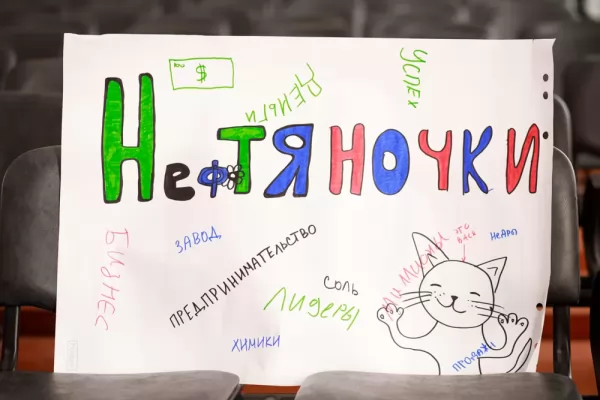 $
Деньги
Успех
Нефтяночки
Бизнес
завод
предпринимательство
соль
Лидеры
химики
это
Вась